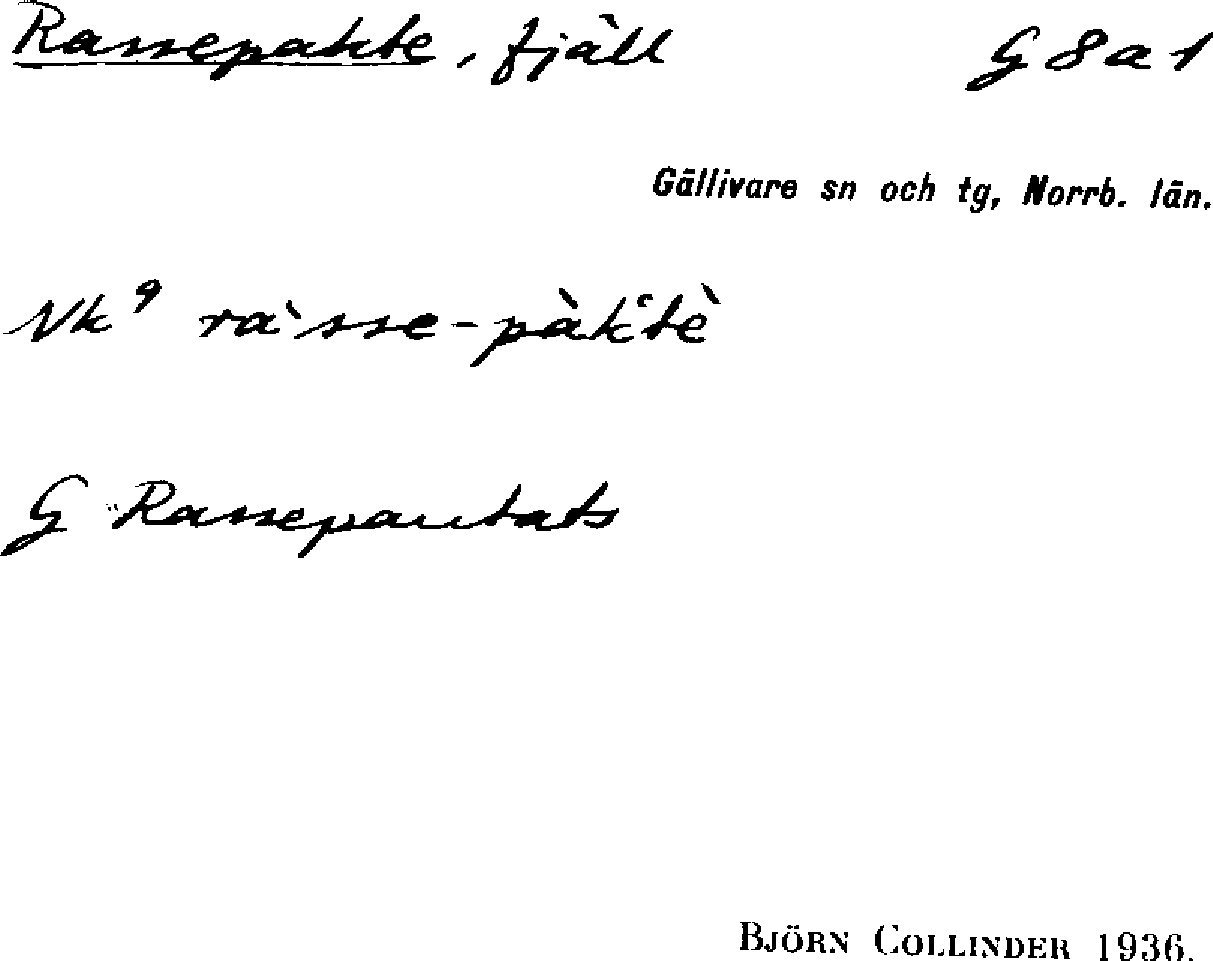 Rassepakte, fjäll G 8 a 1
Gällivare sn och tg, Norrb. län.
Nk 9 ràsse-pàk‘tè
G Rassepautats
BJÖRN COLLINDER 1936.